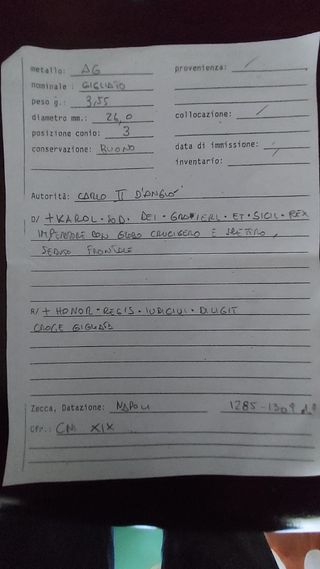 metallo: AG provenienza: /
nominale: GIGLIATO
peso g.: 3,55
diametro mm.: 26,0 collocazione: /
posizione conio: 3
conservazione: BUONO data di immissione: /
inventario: /
Autorità: CARLO II D'ANGIÒ
D/ + KAROL · SCD · DEI · GRA · IERL · ET · SICIL · REX
IMPERATORE CON GLOBO CRUCIGERO E SCETTRO,
SEDUTO FRONTALE
R/ + HONOR · REGIS · IUDICIUI · DILIGIT
CROCE GIGLIATA
Zecca, Datazione: NAPOLI 1285-1309 d.C
Cfr.: CNI XIX